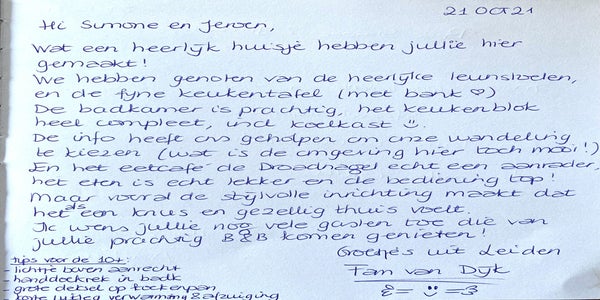 21 Oct 21
Hi Simone en Jeroen,
Wat een heerlijk huisje hebben jullie hier
gemaakt!
We hebben genoten van de heerlijke leunstoelen,
en de fijne keukentafel (met bank ♡)
De badkamer is prachtig, het keukenblok
heel compleet, incl koelkast
De info heeft ons geholpen om onze wandeling
te kiezen (wat is de omgeving hier toch mooi!)
En het eetcafe de Draadnagel echt een aanrader,
het eten is echt lekker en de bediening top!
Maar vooral de stijlvolle inrichting maakt dat
het als een knus en gezellig thuis voelt.
Ik wens jullie nog vele gasten toe die van
jullie prachtig B&B komen genieten!
Groetjes uit Leiden
Fam van Dijk
tips voor de 10+:
- lichtje boven aanrecht
- handdoekrek in badk
- grote deksel op koekenpan
- korte uitleg verwarming & afzuiging